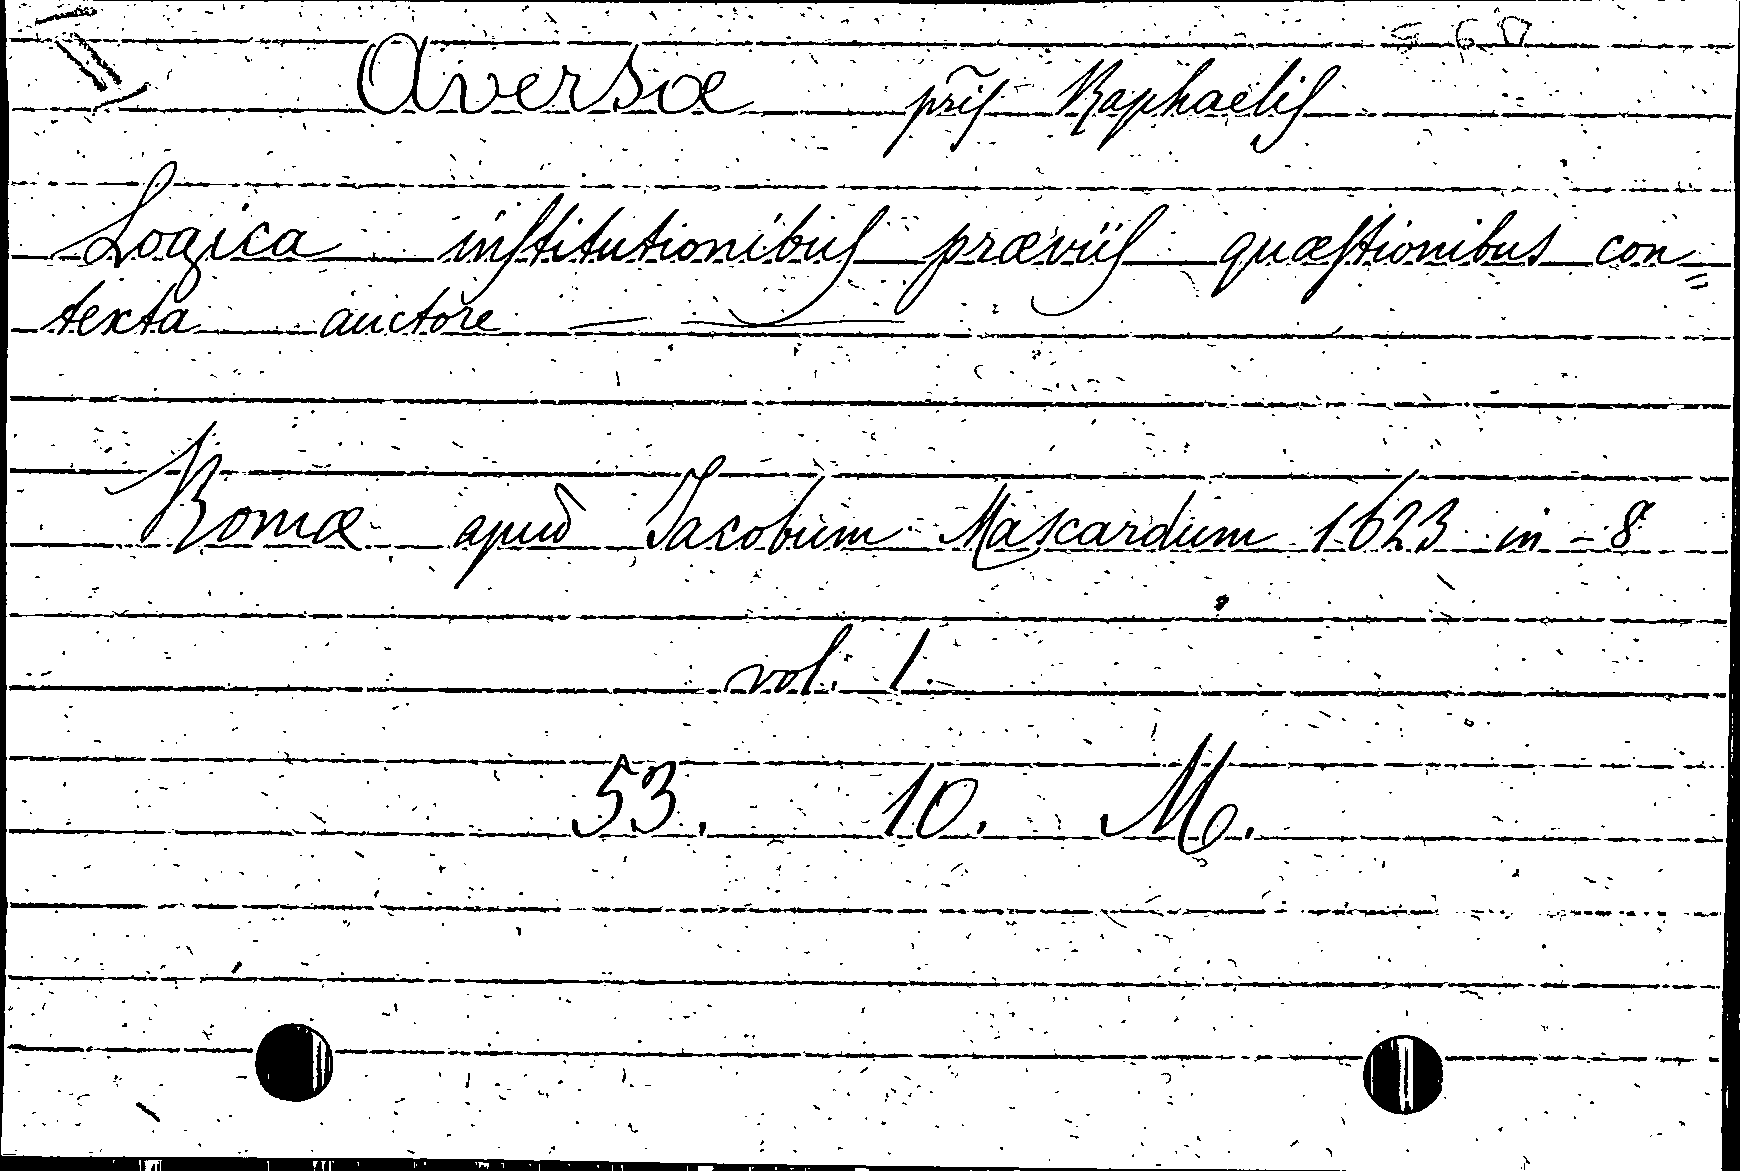 560
Aversæ pr̃is Raphaelis
Logica institutionibus præviis quæstionibus con=
texta auctore —
Romæ apud Jacobum Mascardum 1623 in-8
vol. 1.
53. 10. M.